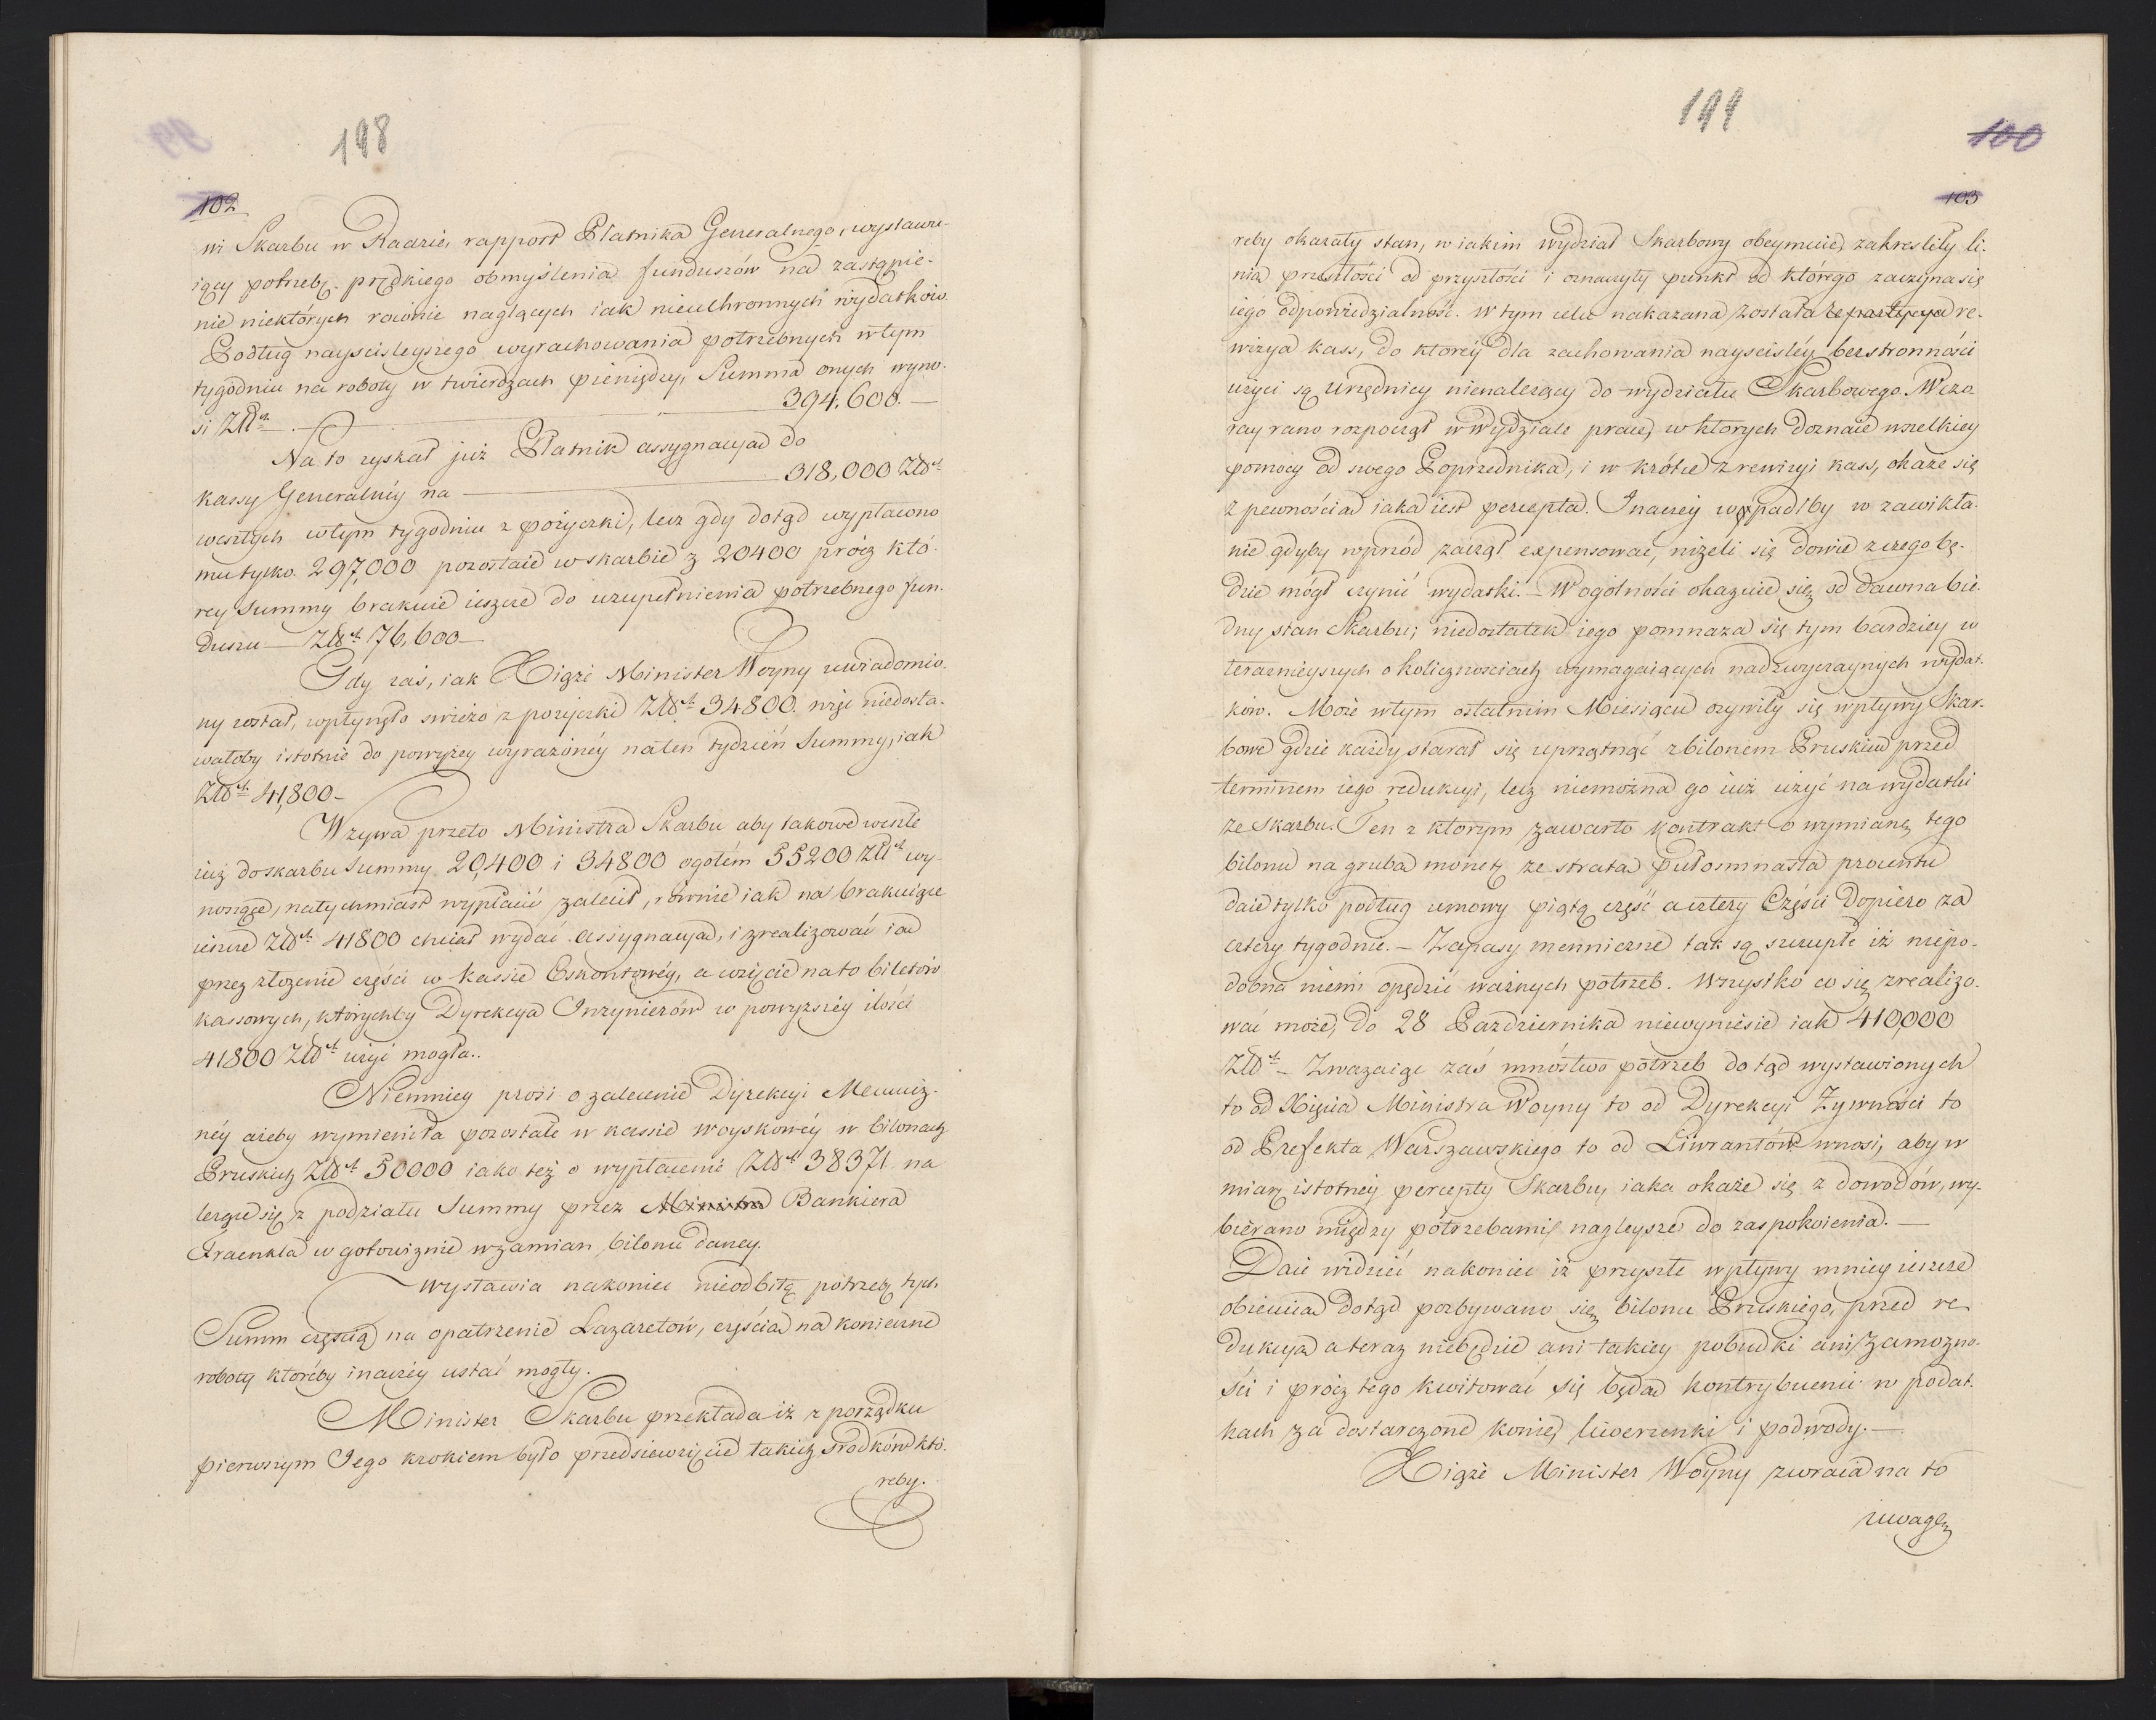 198
102
wi Skarbu w Radzie, rapport Płatnika Generalnego, wystawu-
iący potrzebę prędkiego obmyślenia funduszów na zastąpie-
nie niektórych równie naglących iak nieuchronnych wydatków.
Podług nayściśleyszego wyrachowania potrzebnych w tym
tygodniu na roboty w twierdzach pieniędzy, Summa onych wyno-
si Złł. — 394,600. —
Na to zyskał już Płatnik assygnacyą do
kassy Generalnéy na — 318,000 Złł.
weszłych w tym tygodniu z pożyczki, lecz gdy dotąd wypłacono
mu tylko. 297,000 pozostaie w skarbie z 20400 prócz któ-
rey Summy brakuie ieszcze do uzupełnienia potrzebnego fun-
duszu — Złł. 76,600 —
Gdy zaś, iak Xiąże Minister Woyny uwiadomio-
ny został, wpłynęło świeżo z pożyczki Złł. 34800. więc niedosta-
wałoby istotnie do powyżey wyrażonéy na ten tydzień Summy, iak
Złł. 41,800 —
Wzywa przeto Ministra Skarbu aby takowe weszłe
iuż do skarbu Summy 20,400 i 34800 ogółem 55200 Złł. wy-
noszące, natychmiast wypłacić zalecił, równie iak na brakuiące
ieszcze Złł. 41800 chciał wydać assygnacyą, i zrealizować ią
przez złożenie części w kassie Eskontowéy, a wzięcie na to biletów
kassowych, którychby Dyrekcya Inżynierów w powyższéy ilości
41800 Złł. użyć mogła..
Niemniey prosi o zalecenie Dyrekcyi Menniz-
néy ażeby wymieniła pozostałe w kassie woyskowéy w bilonach
Pruskich Złł. 50000 iako też o wypłacenie Złł. 38371 na
leżące się z podziału Summy przez Ministra Bankiera
Fraenkla w gotowiznie wzamian bilonu daney.
Wystawia nakoniec nieodbitą potrzebę tych
Summ częścią na opatrzenie Lazaretów, częścią na konieczne
roboty któréby inaczéy ustać mogły.
Minister Skarbu przekłada iż z porządku
pierwszym Jego krokiem było przedsięwzięcie takich środków któ-
reby.
199
100
103
reby okazały stan, w iakim wydział Skarbowy obeymuie, zakreśliły li-
nią przeszłości od przyszłości i oznaczyły punkt od którego zaczyna się
iego odpowiedzialność. W tym celu nakazana została re-
wizya kass, do któréy dla zachowania nayściśléy bezstronności
użyci są urzędnicy nienależący do wydziału Skarbowego. Wczo
ray rano rozpoczął w Wydziale pracę, w których doznaie wszelkiey
pomocy od swego Poprzednika, i w krótce z rewizyi kass, okaże się
z pewnością iaka iest percepta. Inaczéy wpadłby w zawikła-
nie gdyby wprzód zaczął expensować, niżeli się dowie z czego bę-
dzie mógł czynić wydatki. — W ogólności okazuie się od dawna bie-
dny stan Skarbu; niedostatek iego pomnaża się tym bardziey w
teraznieyszych okolicznościach wymagaiących nadzwyczaynych wydat-
ków. Może w tym ostatnim Miesiącu ożywiły się wpływy Skar-
bowe gdzie każdy starał się uprzątnąć z bilonem Pruskim przed
terminem iego redukcyi, lecz niemożna go iuż użyć na wydatki
ze Skarbu. Ten z którym zawarto kontrakt o wymianę tego
bilonu na grubą monetę ze stratą pułosmnasta procentu
daie tylko podług umowy piątą część a cztery Części Dopiero za
cztery tygodnie. — Zapasy mennicze tak są szczupłe iż niepo-
dobna niemi opędzić ważnych potrzeb. Wszystko co się zrealizo-
wać może, do 28 Października niewyniesie iak 410,000
Złł. — Zważaiąc zaś mnóstwo potrzeb dotąd wystawionych
to od Xięcia Ministra Woyny to od Dyrekcyi Żywności to
od Prefekta Warszawskiego to od Liwrantów wnosi, aby w
miarę istotnéy percepty Skarbu, iaka okaże się z dowodów, wy-
bierano między potrzebami nagleysze do zaspokoienia. —
Daie widzieć nakoniec iż przyszłe wpływy mniey ieszcze
obiecuią dotąd pozbywano się bilonu Pruskiego, przed re
dukcyą a teraz niebędzie ani takiey pobudki ani zamożno-
ści i prócz tego kwitować się będą kontrybuenci w podat-
kach za dostarczone konie, liwerunki i podwody. —
Xiąże Minister Woyny zwraca na to
uwagę